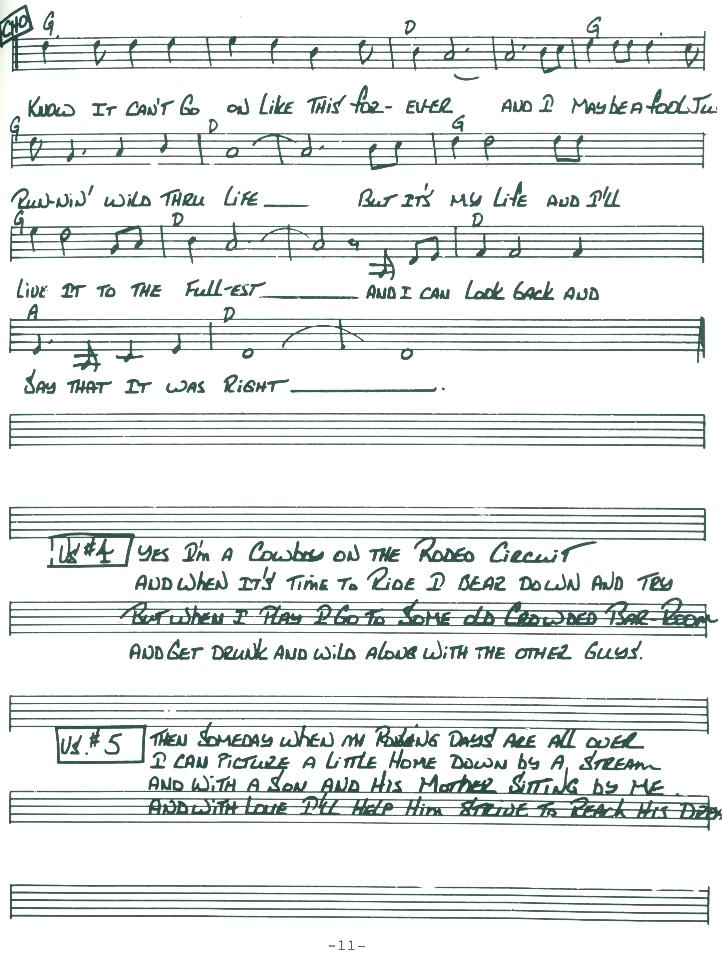 CHO G. D G
KNOW IT CAN'T GO ON LIKE THIS FOR- EVER AND I MAY BE A FOOL
G D G
RUN-NIN' WILD THRU LIFE____ BUT IT'S MY LIFE AND I'LL
G D D
LIVE IT TO THE FULL-EST________ AND I CAN LOOK BACK AND
A D
SAY THAT IT WAS RIGHT____________.
VS #4 YES I'M A COWBOY ON THE RODEO CIRCUIT
AND WHEN IT'S TIME TO RIDE I BEAR DOWN AND TRY
BUT WHEN I PLAY I GO TO SOME OLD CROWDED BAR-ROOM
AND GET DRUNK AND WILD ALONG WITH THE OTHER GUYS.
VS. #5 THEN SOMEDAY WHEN MY DAYS ARE ALL OVER
I CAN PICTURE A LITTLE HOME DOWN BY A STREAM
AND WITH A SON AND HIS MOTHER SITTING BY ME.
AND WITH LOVE I'LL HELP HIM STRIVE TO REACH HIS
-11-